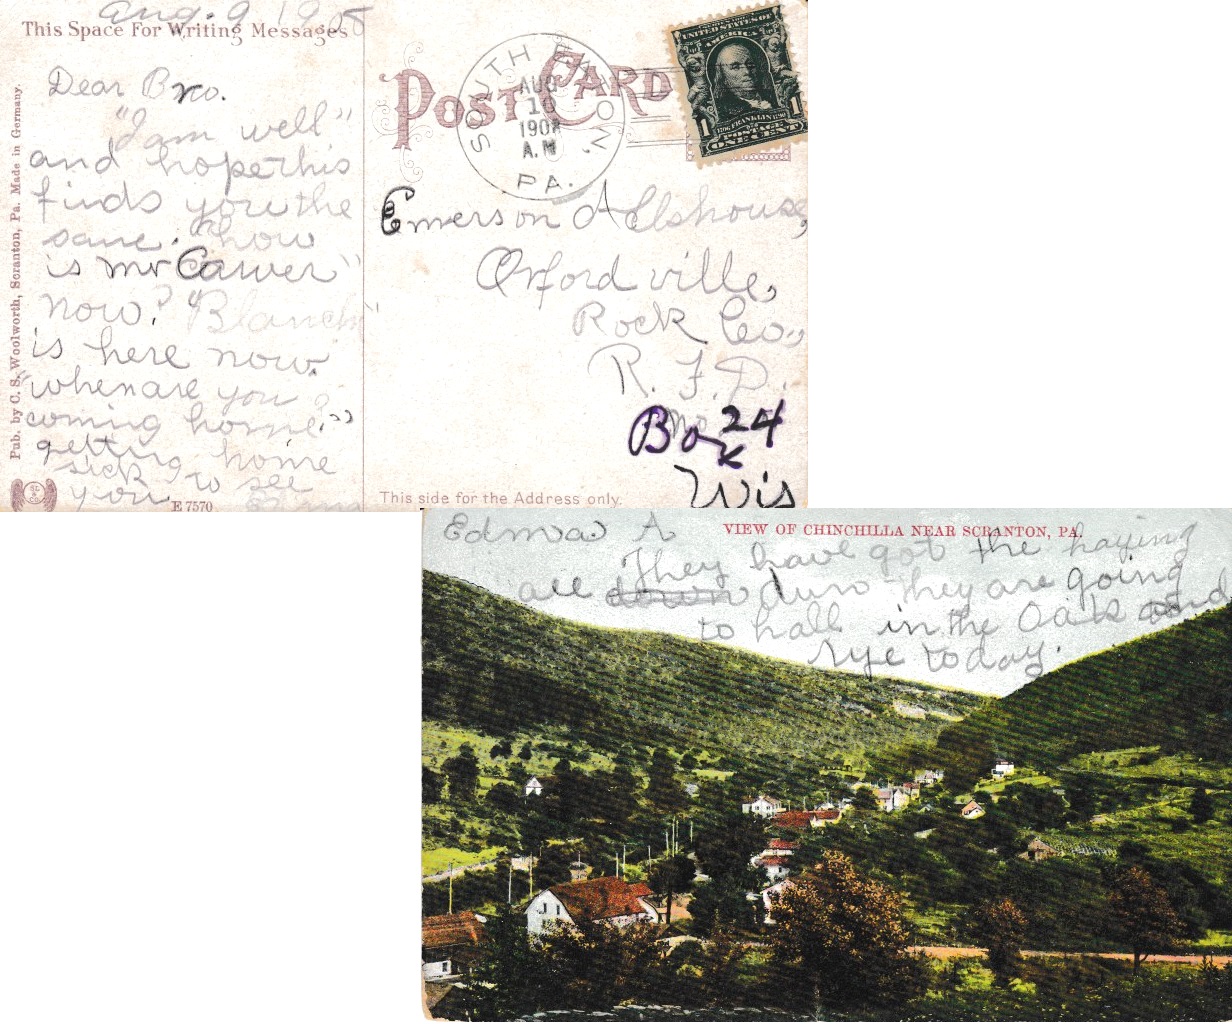 Aug. 9 1908
This Space For Writing Messages
Dear Bro.
"I am well"
and hope this
finds you the
same. "how
is mr Carver"
now? "Blanch
is here now."
"when are you
coming home?"
getting home
sick to see
you.
E 7570
Pub. by C. S. Woolworth, Scranton, Pa. Made in Germany.
POST CARD
SOUTH EATON,
AUG
10
1908
A.M
PA.
UNITED STATES OF
AMERICA
1706 FRANKLIN 1790
1 POSTAGE 1
ONE CENT
Emerson A Elshouse,
Orfordville,
Rock Co.,
R. F. D.
Box 24
Wis
This side for the Address only.
VIEW OF CHINCHILLA NEAR SCRANTON, PA.
Edna A
They have got the haying
all down dun they are going
to hall in the Oats and
rye today.